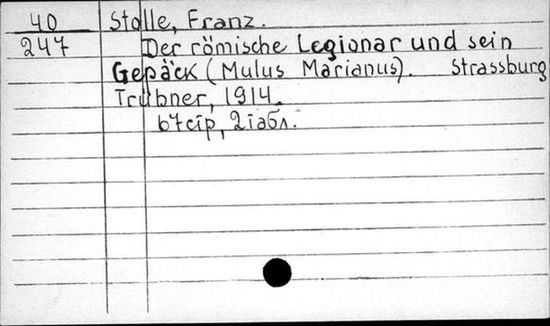 40 Stolle, Franz.
247 Der römische Legionar und sein
Gepäck (Mulus Marianus). Strassburg
Trübner, 1914.
67cтр, 2табл.